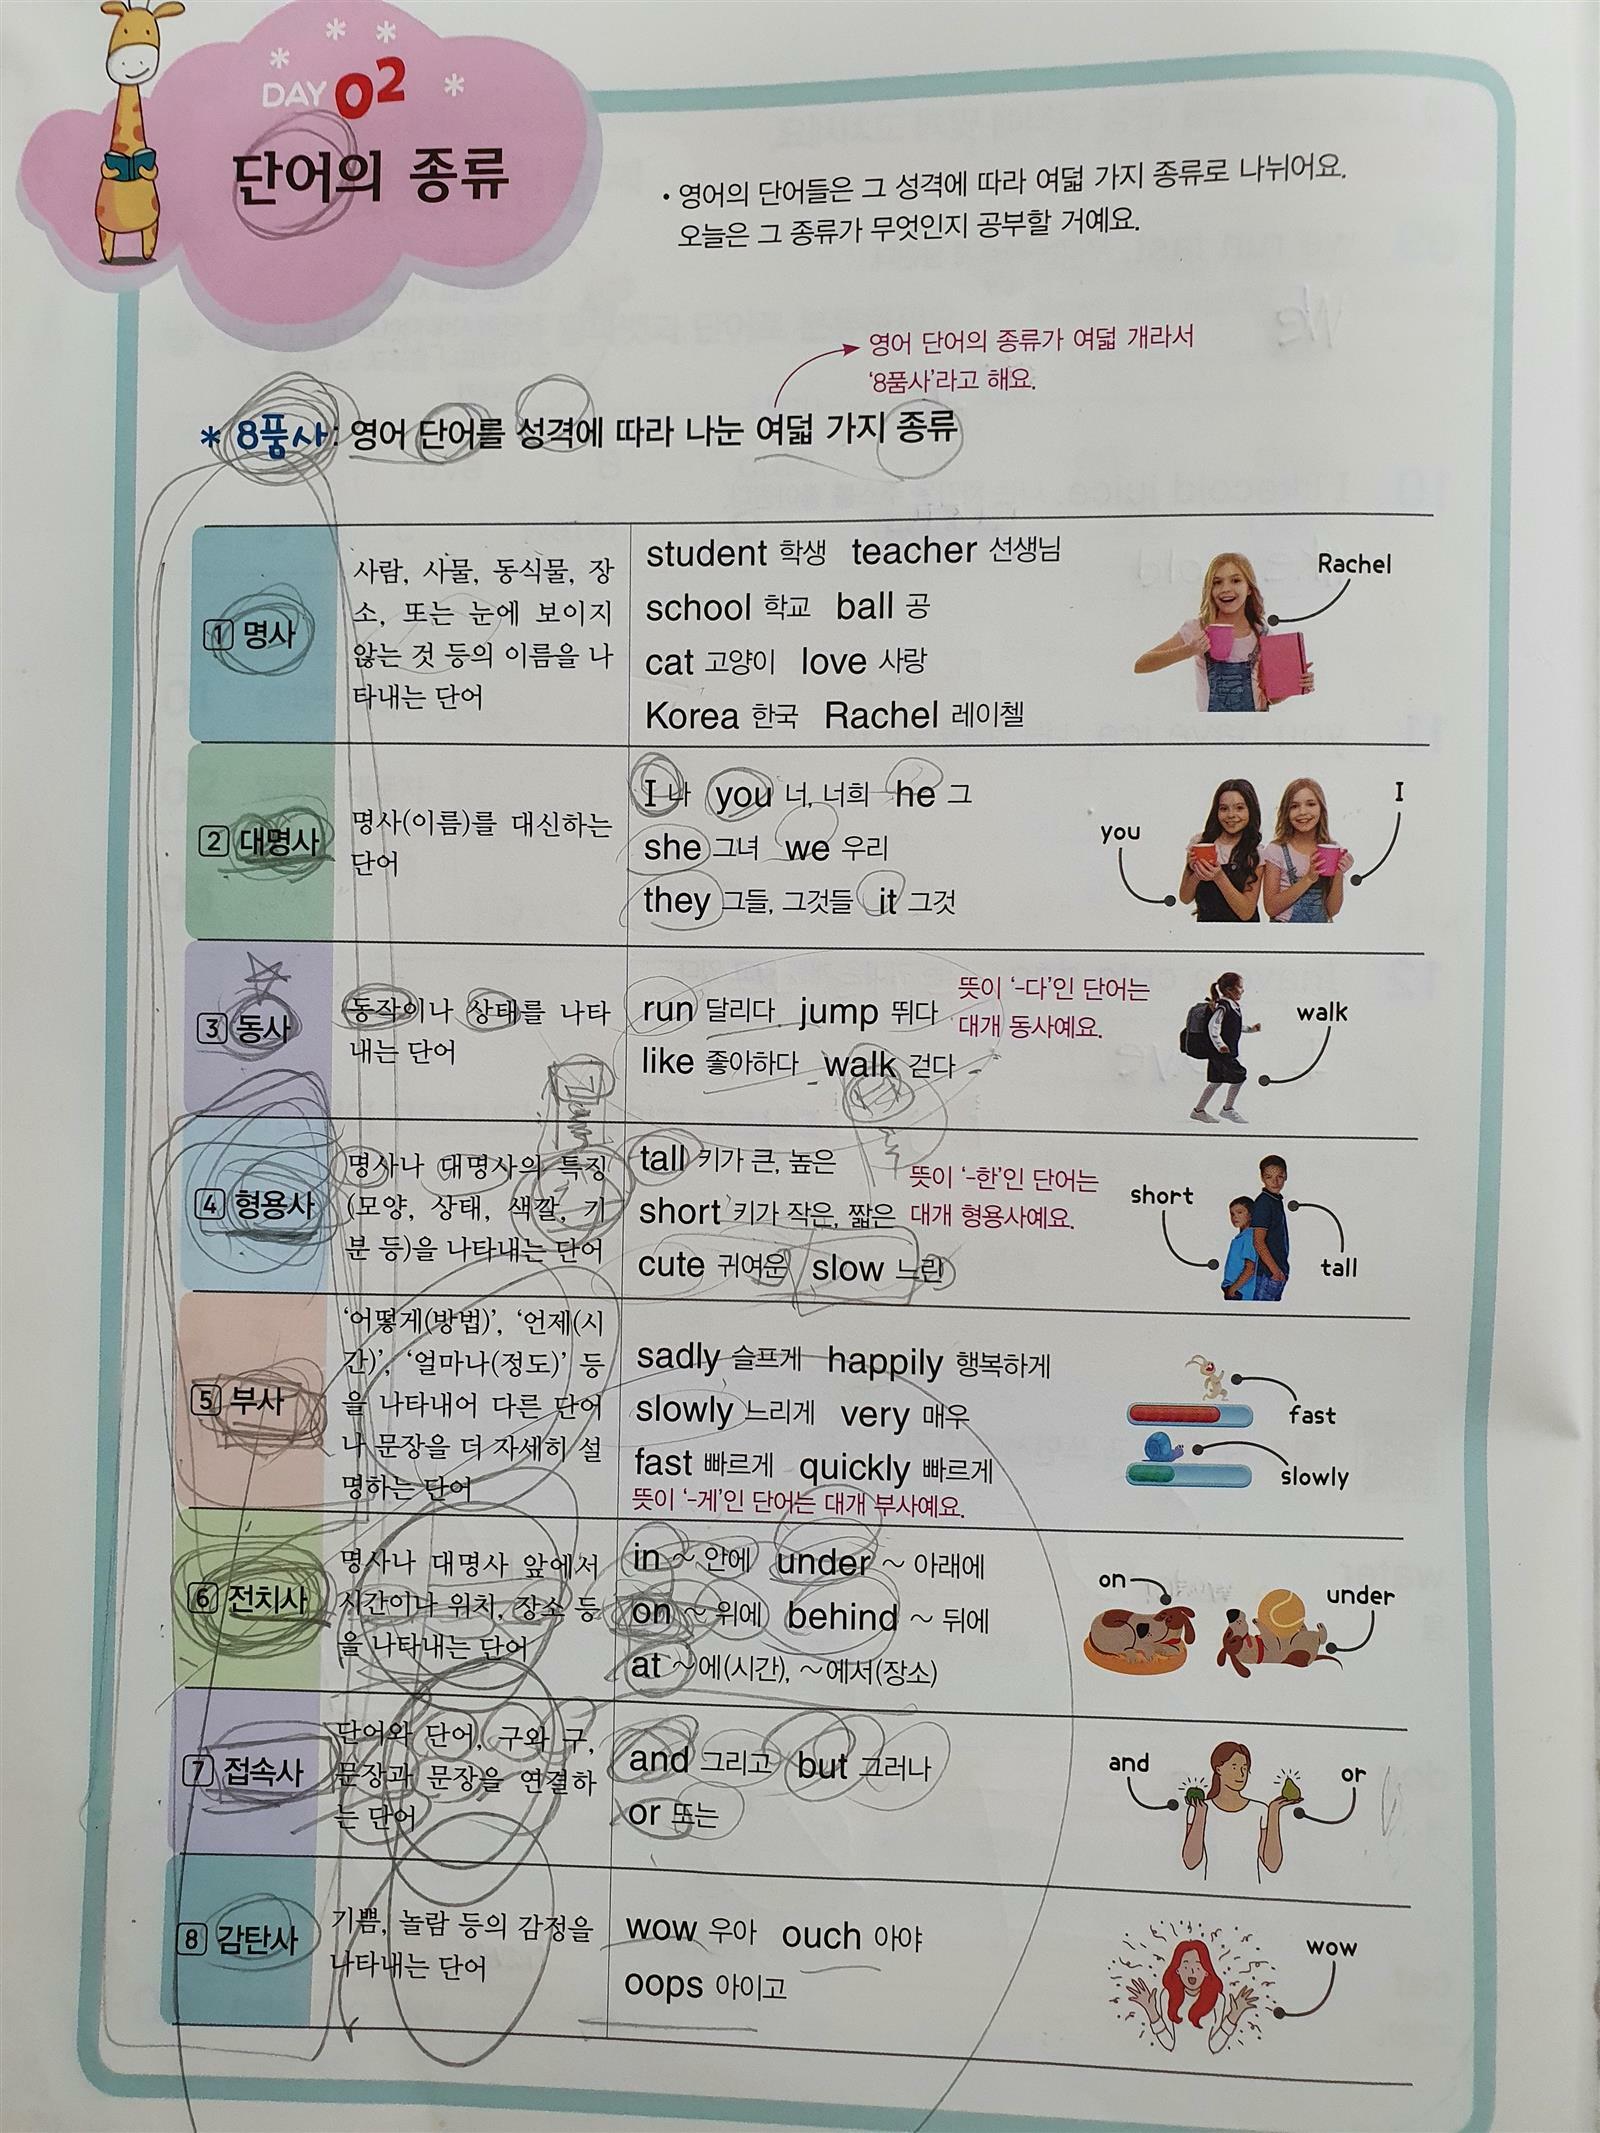 DAY 02
단어의 종류
• 영어의 단어들은 그 성격에 따라 여덟 가지 종류로 나뉘어요.
오늘은 그 종류가 무엇인지 공부할 거예요.
영어 단어의 종류가 여덟 개라서
‘8품사’라고 해요.
* 8품사: 영어 단어를 성격에 따라 나눈 여덟 가지 종류
1 명사
사람, 사물, 동식물, 장
소, 또는 눈에 보이지
않는 것 등의 이름을 나
타내는 단어
student 학생 teacher 선생님
school 학교 ball 공
cat 고양이 love 사랑
Korea 한국 Rachel 레이첼
Rachel
2 대명사
명사(이름)를 대신하는
단어
I 나 you 너, 너희 he 그
she 그녀 we 우리
they 그들, 그것들 it 그것
you
I
3 동사
동작이나 상태를 나타
내는 단어
run 달리다 jump 뛰다
like 좋아하다 walk 걷다
뜻이 ‘-다’인 단어는
대개 동사예요.
walk
4 형용사
명사나 대명사의 특징
(모양, 상태, 색깔, 기
분 등)을 나타내는 단어
tall 키가 큰, 높은
short 키가 작은, 짧은
cute 귀여운 slow 느린
뜻이 ‘-한’인 단어는
대개 형용사예요.
short
tall
5 부사
‘어떻게(방법)’, ‘언제(시
간)’, ‘얼마나(정도)’ 등
을 나타내어 다른 단어
나 문장을 더 자세히 설
명하는 단어
sadly 슬프게 happily 행복하게
slowly 느리게 very 매우
fast 빠르게 quickly 빠르게
뜻이 ‘-게’인 단어는 대개 부사예요.
fast
slowly
6 전치사
명사나 대명사 앞에서
시간이나 위치, 장소 등
을 나타내는 단어
in ~ 안에 under ~ 아래에
on ~ 위에 behind ~ 뒤에
at ~에(시간), ~에서(장소)
on
under
7 접속사
단어와 단어, 구와 구,
문장과 문장을 연결하
는 단어
and 그리고 but 그러나
or 또는
and
or
8 감탄사
기쁨, 놀람 등의 감정을
나타내는 단어
wow 우아 ouch 아야
oops 아이고
wow